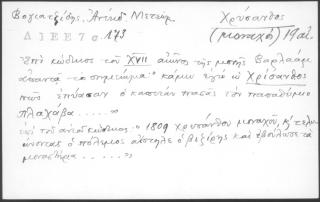 Βογιατζίδης, Ἁγίων Μετεώρ
Χρύσανθος
Δ Ι Ε Ε 7 σ. 173
(μοναχός) 19 αἰ.
Ἐπὶ κώδικος τοῦ XVII αἰῶνος τῆς μονῆς Βαρλαὰμ
ἀπαντᾷ τὸ σημείωμα· κάμω ἐγὼ ὁ Χρύσανθος
πῶς ἐπιάσαν ὁ καπετὰν πασᾶς τὸν παπαθύμιο
βλαχάβα .....
ἐπὶ τοῦ αὐτοῦ κώδικος· 1809 χρυσάνθου μοναχοῦ,
ὁ πόλεμος ὁ βεζίρης καὶ ἐβούλωσε τὰ
μοναστήρια .....